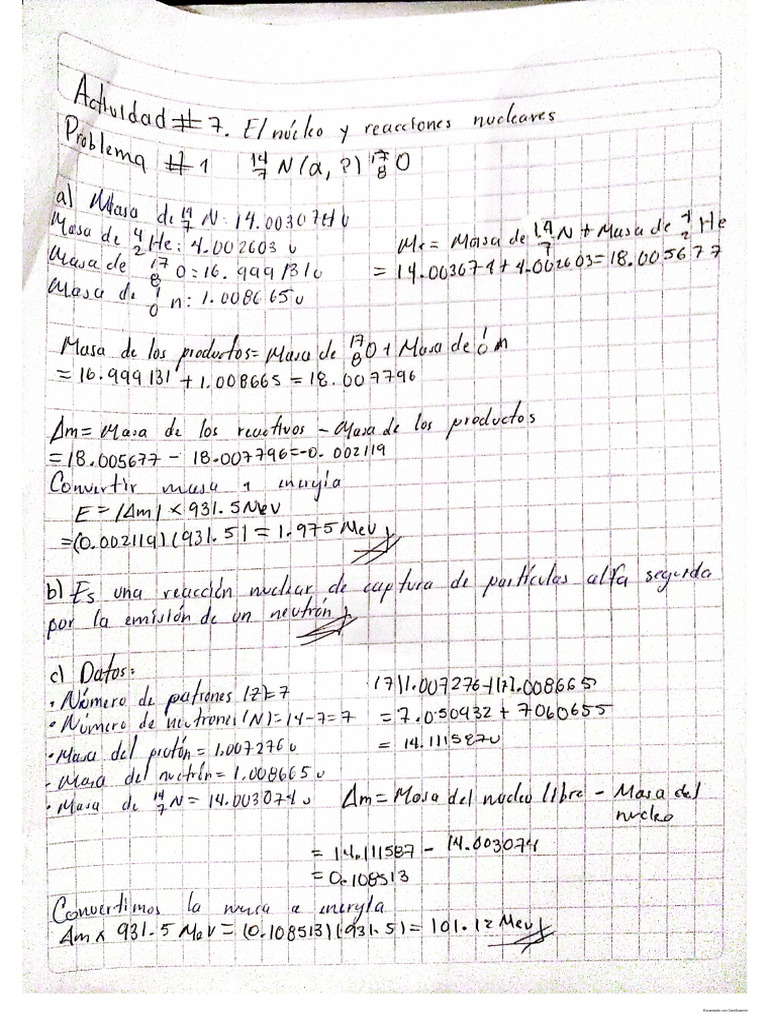 Actividad # 7. El núcleo y reacciones nucleares
Problema # 1 ¹⁴₇N(α, ?) ¹⁷₈O
a) Masa de ¹⁴₇N: 14.003074u
Masa de ⁴₂He: 4.002603 u
Masa de ¹⁷₈O: 16.999131u
Masa de ¹₀n: 1.008665u
Mr = Masa de ¹⁴₇N + Masa de ⁴₂He
= 14.003074 + 4.002603 = 18.005677
Masa de los productos = Masa de ¹⁷₈O + Masa de ¹₀n
= 16.999131 + 1.008665 = 18.007796
Δm = Masa de los reactivos - Masa de los productos
= 18.005677 - 18.007796 = -0.002119
Convertir masa a energía
E = |Δm| x 931.5 MeV
= (0.002119)(931.5) = 1.975 MeV
b) Es una reacción nuclear de captura de partículas alfa seguida
por la emisión de un neutrón
c) Datos:
• Número de protones (z)=7
• Número de neutrones (N) = 14-7=7
• Masa del protón = 1.007276u
• Masa del neutrón = 1.008665u
• Masa de ¹⁴₇N = 14.003074 u
(7)1.007276+(7)1.008665
= 7.050932 + 7060655
= 14.111587u
Δm = Masa del nucleo libre - Masa del
nucleo
= 14.111587 - 14.003074
= 0.108513
Convertimos la masa a energía
Δm x 931.5 MeV = (0.108513)(931.5) = 101.12 MeV
Escaneado con CamScanner